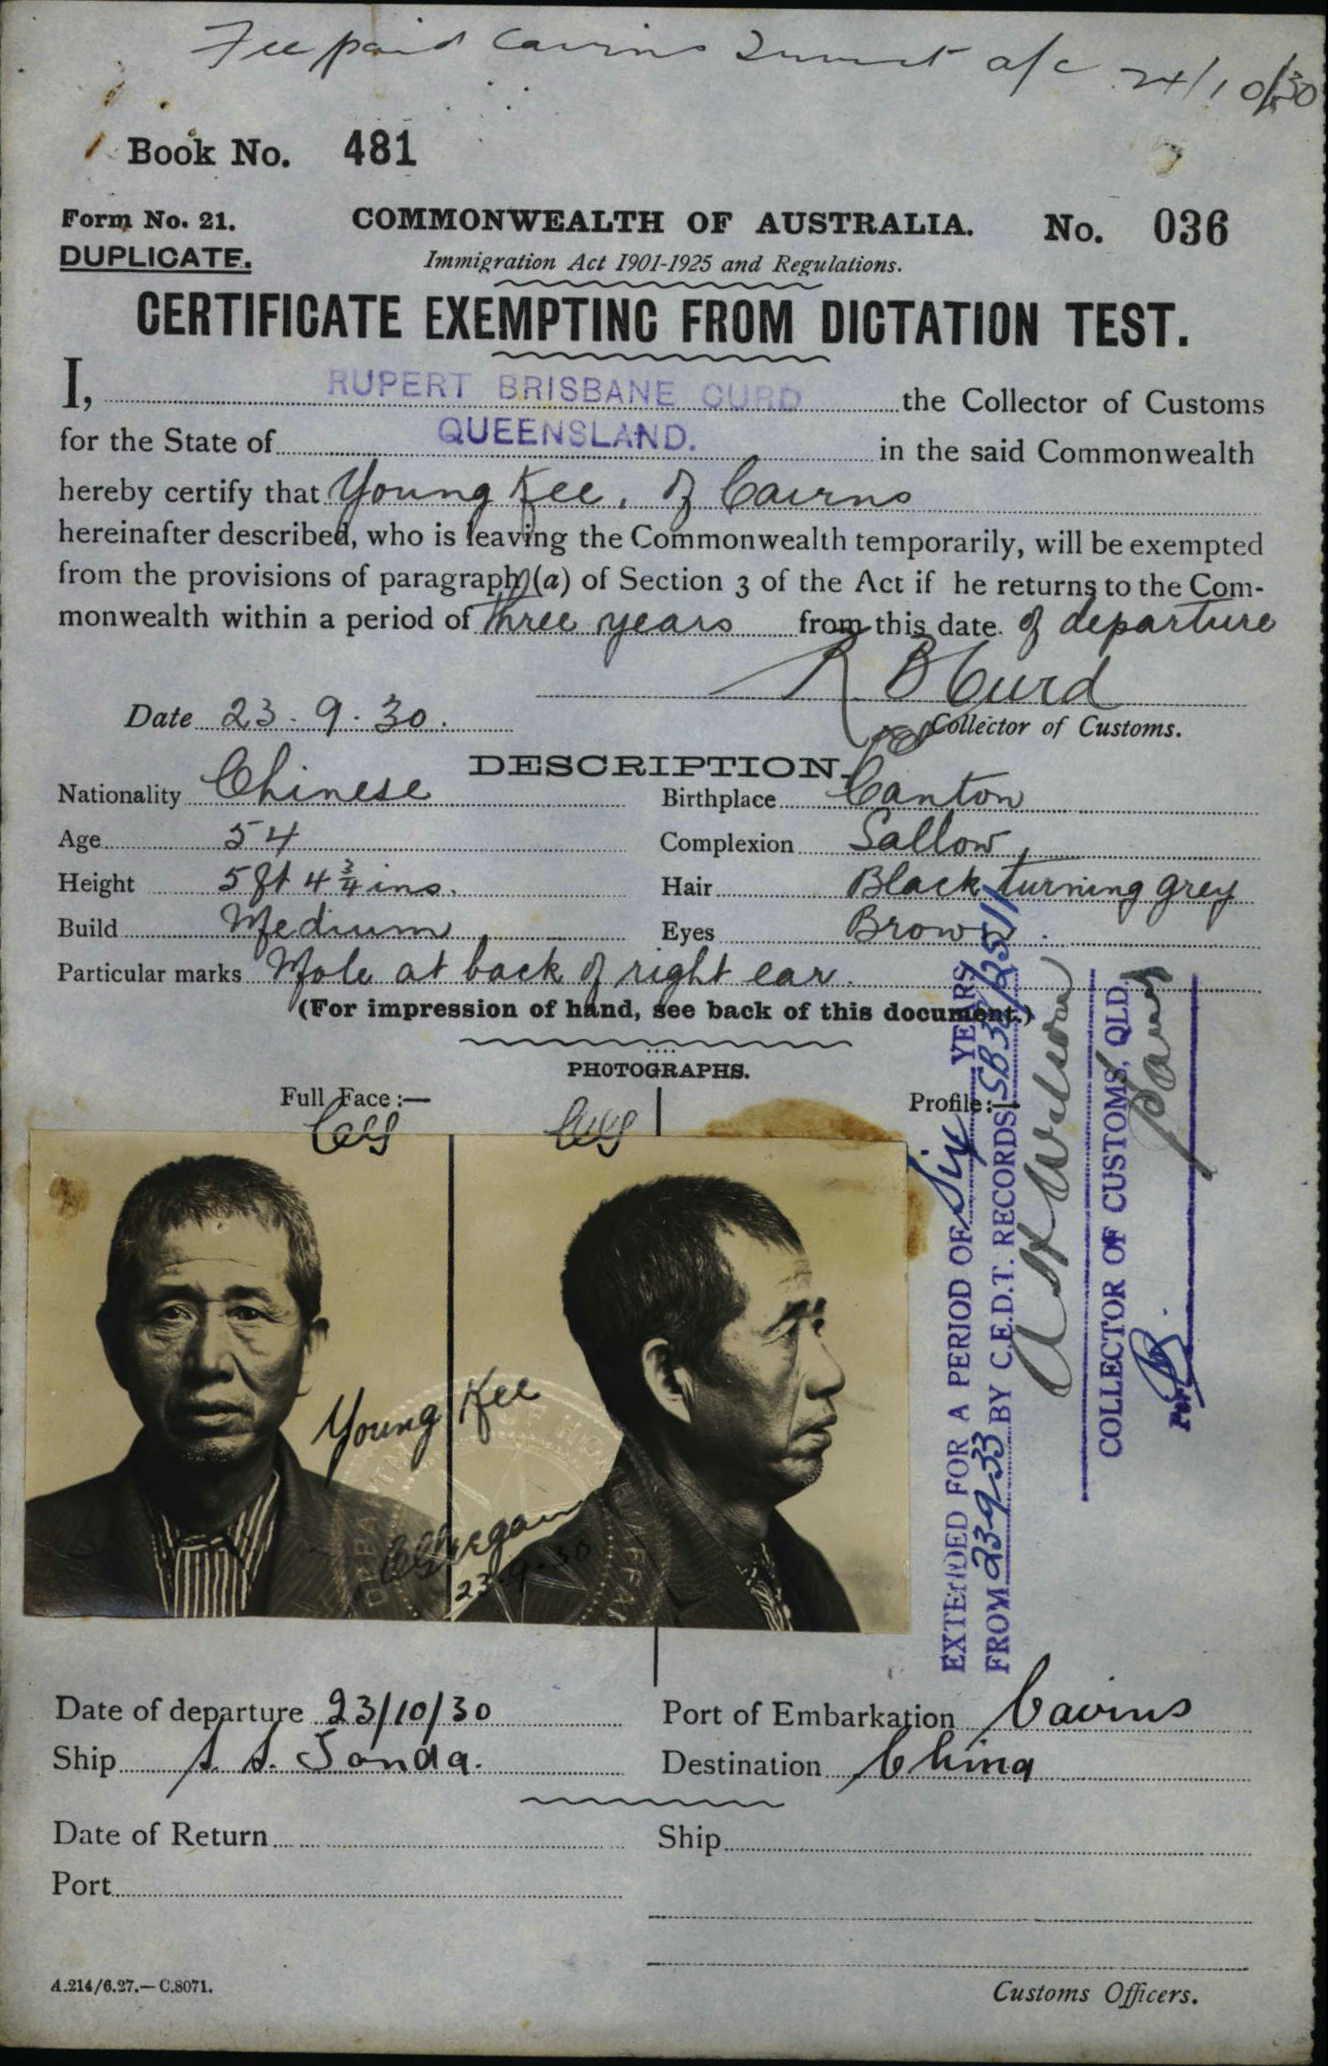 Fee paid Cairns a/c 24/10/30
Book No. 481
Form No. 21.
COMMONWEALTH OF AUSTRALIA.
No. 036
DUPLICATE.
Immigration Act 1901-1925 and Regulations.
CERTIFICATE EXEMPTING FROM DICTATION TEST.
I, RUPERT BRISBANE CURD the Collector of Customs
for the State of QUEENSLAND. in the said Commonwealth
hereby certify that Young Kee, of Cairns
hereinafter described, who is leaving the Commonwealth temporarily, will be exempted
from the provisions of paragraph (a) of Section 3 of the Act if he returns to the Com-
monwealth within a period of three years from this date of departure
R B Curd
Date 23.9.30.
Collector of Customs.
DESCRIPTION.
Nationality Chinese Birthplace Canton
Age 54 Complexion Sallow
Height 5 ft 4 3/4 ins. Hair Black turning grey
Build Medium Eyes Brown
Particular marks Mole at back of right ear.
(For impression of hand, see back of this document.)
PHOTOGRAPHS.
Full Face:—
Profile:—
Young Kee
23.9.30
EXTENDED FOR A PERIOD OF Six YEARS
FROM 23.9.33 BY C.E.D.T. RECORDS SB33/2511
COLLECTOR OF CUSTOMS, QLD.
Per
Date of departure 23/10/30 Port of Embarkation Cairns
Ship S. S. Tanda. Destination China
Date of Return Ship
Port
A.214/6.27.—C.8071.
Customs Officers.